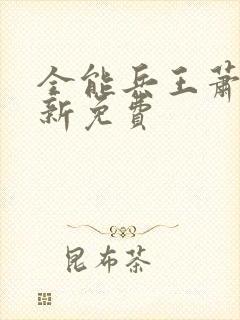 全能兵王萧
新免费
昆布茶